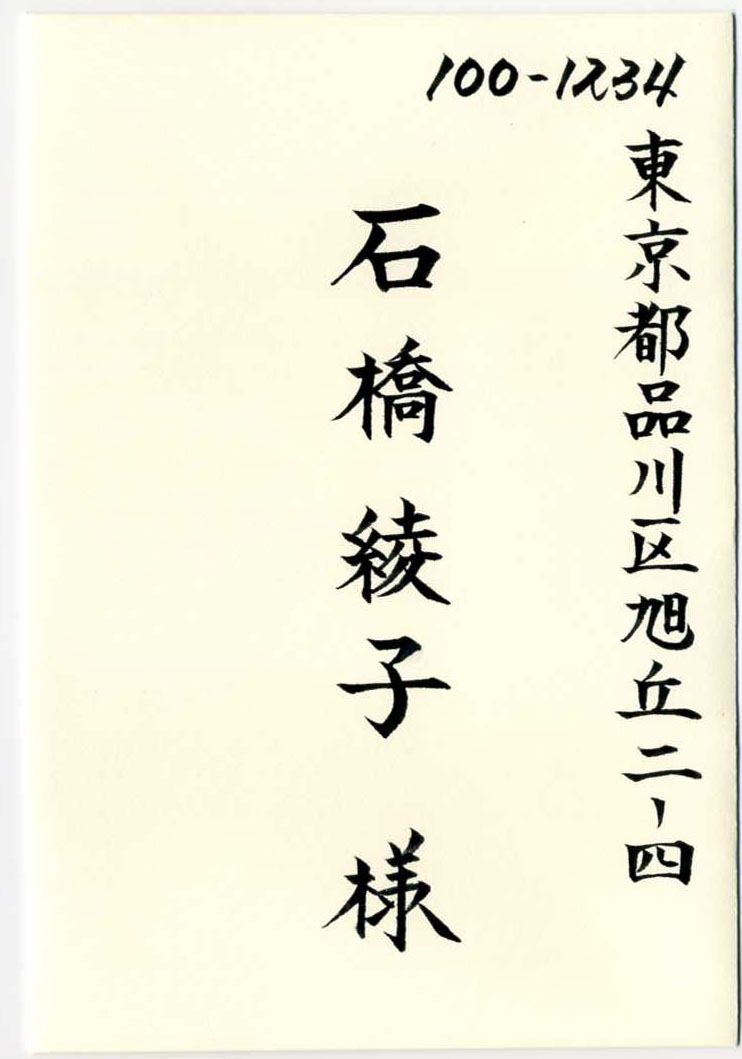 100-1234
東京都品川区旭丘二-四
石橋綾子 様